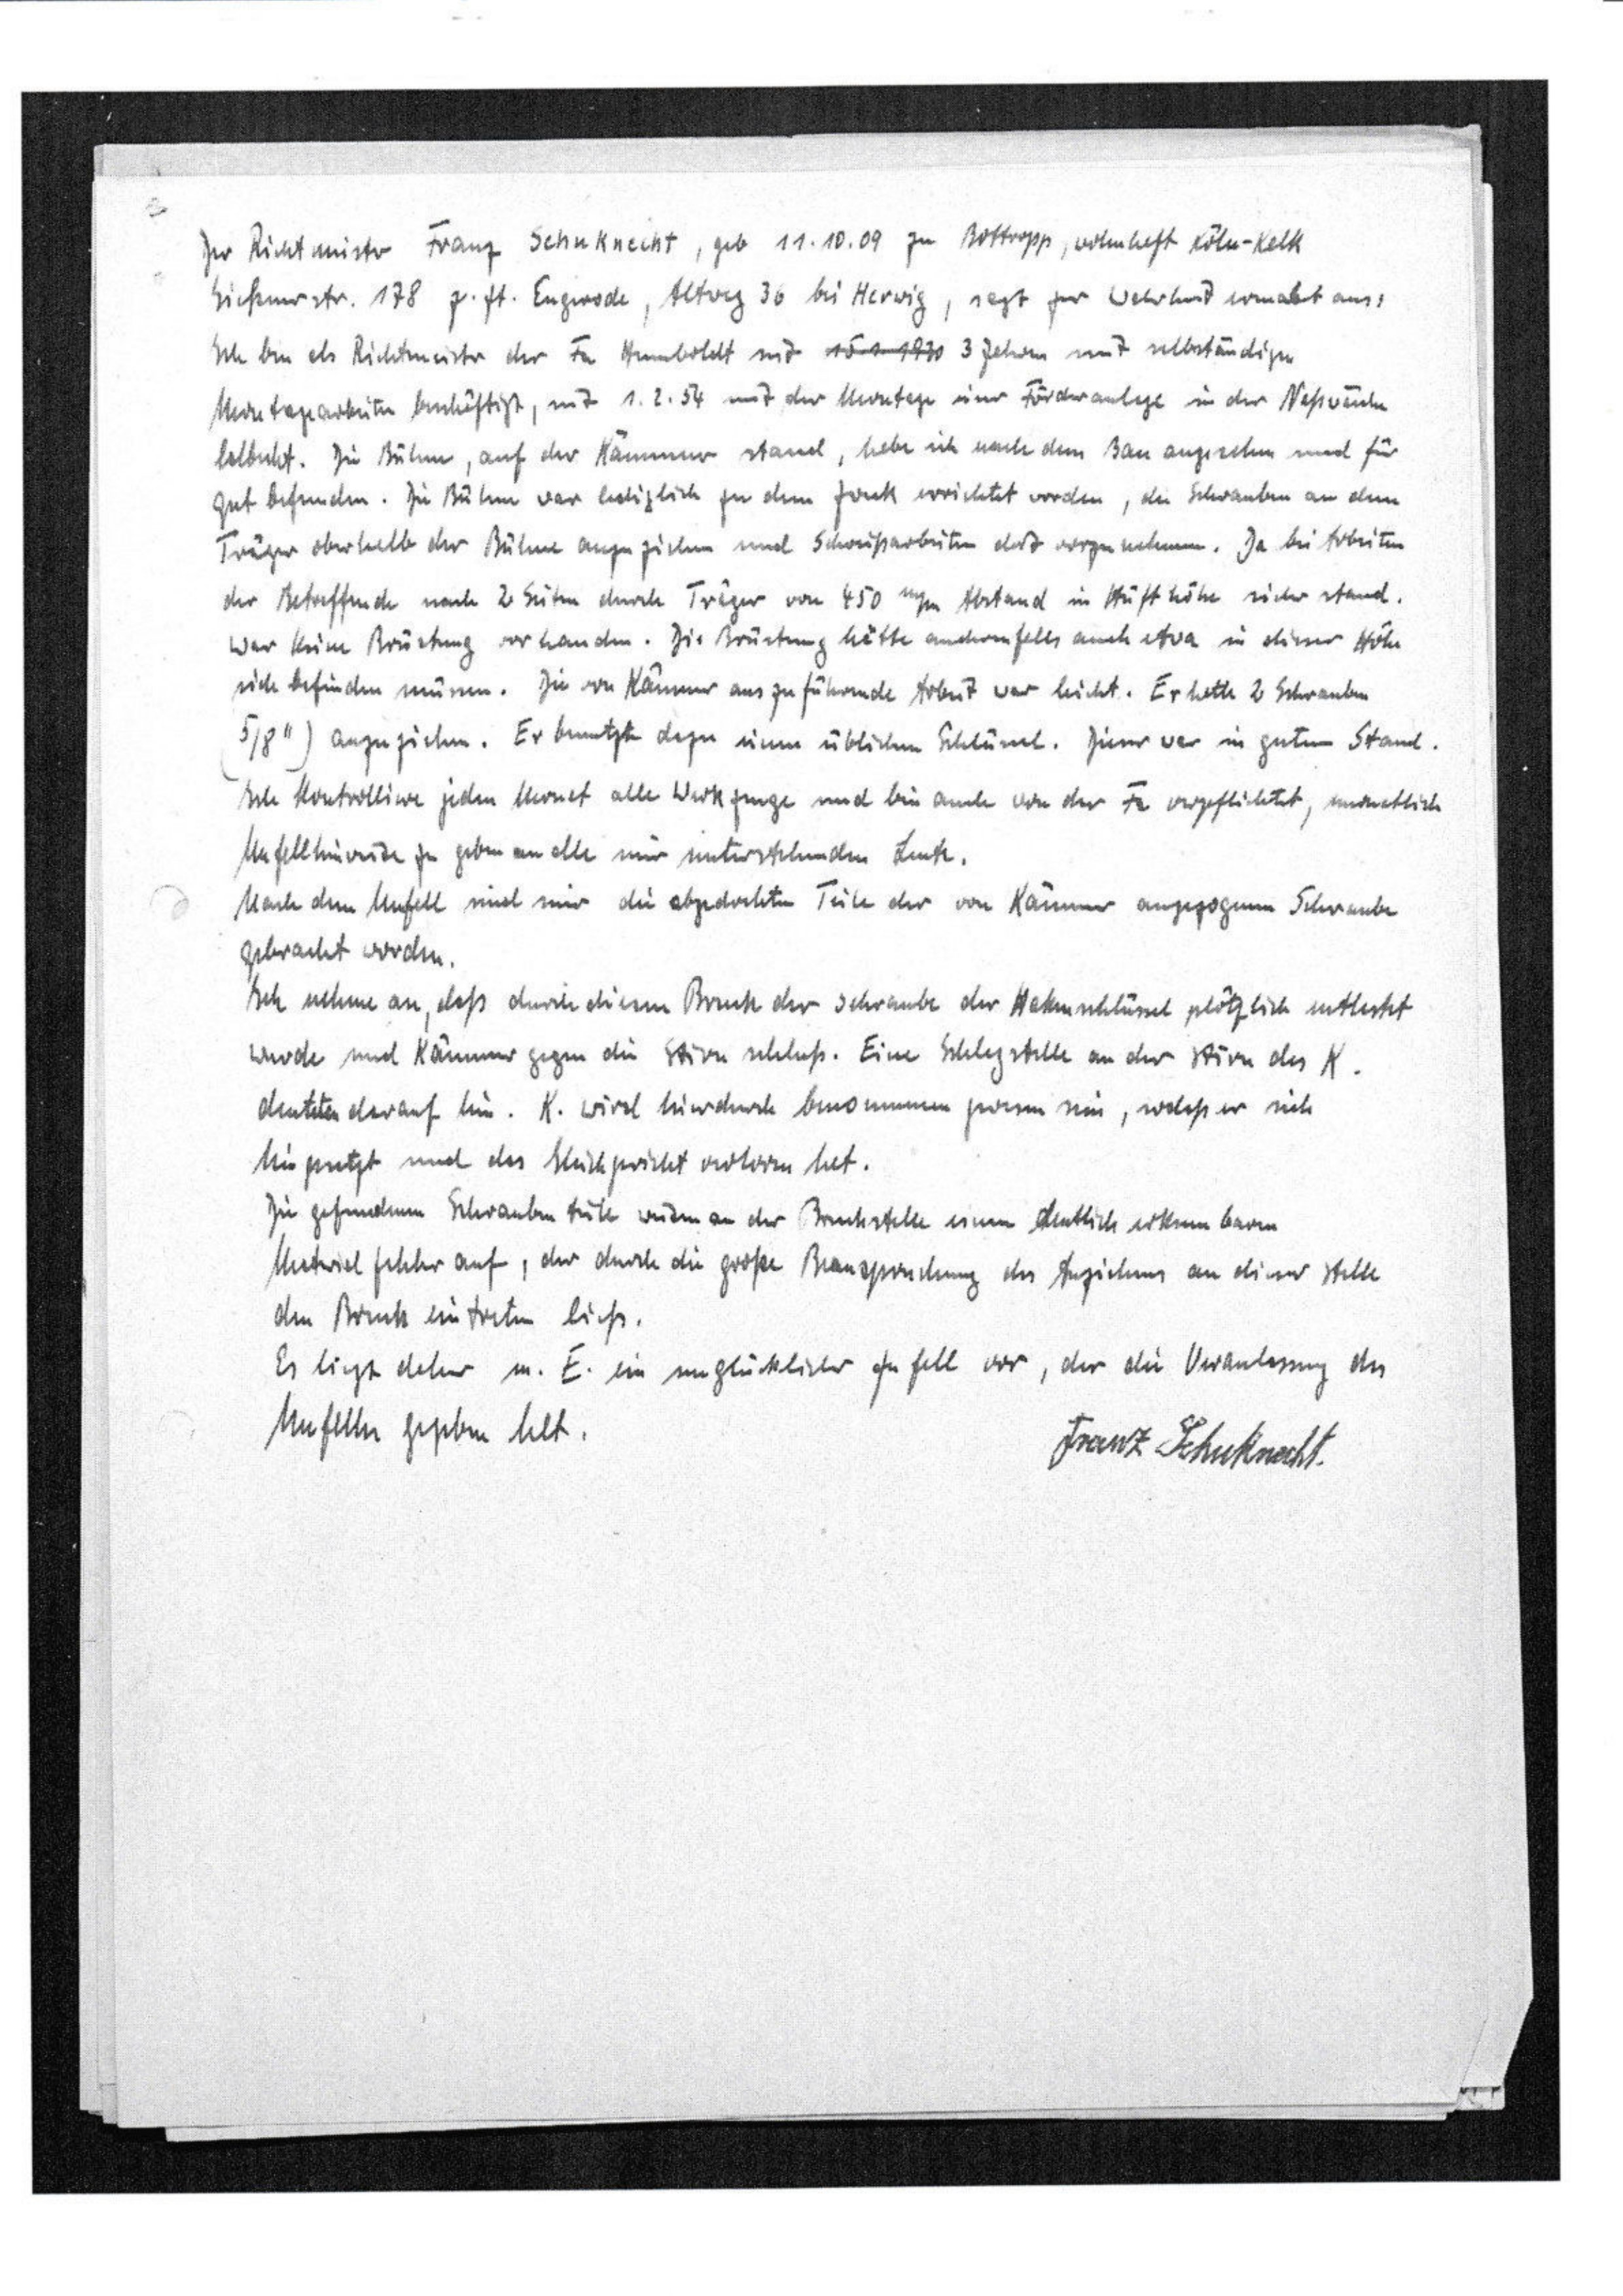 Der Richtmeister Franz Schuknecht, geb 11.10.09 zu Bottropp, wohnhaft Köln-Kalk
Gießenerstr. 178 z. Zt. Engerode, Altweg 36 bei Herwig, sagt zur Wahrheit ermahnt aus:
Ich bin als Richtmeister der Fa Humboldt seit 15.1.1930 3 Jahren mit selbständigen
Montagearbeiten beschäftigt, seit 1.2.54 mit der Montage einer Förderanlage in der Naßwäsche
betraut. Die Bühne, auf der Kämmer stand, habe ich nach dem Bau angesehen und für
gut befunden. Die Bühne war lediglich zu dem Zweck errichtet worden, die Schrauben an dem
Träger oberhalb der Bühne anzuziehen und Schweißarbeiten dort vorzunehmen. Da bei Arbeiten
der Betreffende nach 2 Seiten durch Träger von 450 mm Abstand in Hüfthöhe sicher stand.
war keine Brüstung vorhanden. Die Brüstung hätte andernfalls auch etwa in dieser Höhe
sich befinden müssen. Die von Kämmer auszuführende Arbeit war leicht. Er hatte 2 Schrauben
(5/8") anzuziehen. Er benutzte dazu einen üblichen Schlüssel. Dieser war in gutem Stand.
Ich kontrolliere jeden Monat alle Werkzeuge und bin auch von der Fa verpflichtet, monatlich
Unfallhinweise zu geben an alle mir unterstehenden Leute.
Nach dem Unfall sind mir die abgedrehten Teile der von Kämmer angezogenen Schraube
gebracht worden.
Ich nehme an, daß durch diesen Bruch der Schraube der Hakenschlüssel plötzlich entlastet
wurde und Kämmer gegen die Stirn schlug. Eine Schlagstelle an der Stirn des K.
deuteten darauf hin. K. wird hierdurch benommen gewesen sein, sodaß er sich
hingesetzt und das Gleichgewicht verloren hat.
Die gefundenen Schraubenteile weisen an der Bruchstelle einen deutlich erkennbaren
Materialfehler auf, der durch die große Beanspruchung des Anziehens an dieser Stelle
den Bruch eintreten ließ.
Es liegt daher m. E. ein unglücklicher Zufall vor, der die Veranlassung des
Unfalles gegeben hat.
Franz Schuknecht.